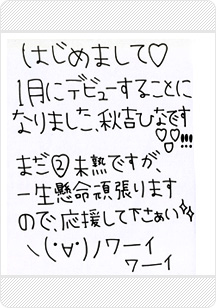 はじめまして♡
1月にデビューすることに
なりました、秋吉ひなです
♡♡♡!!!
まだ②未熟ですが、
一生懸命頑張ります
ので、応援して下さぁい✨
ヽ(･∀･)ノワーイ
ワーイ